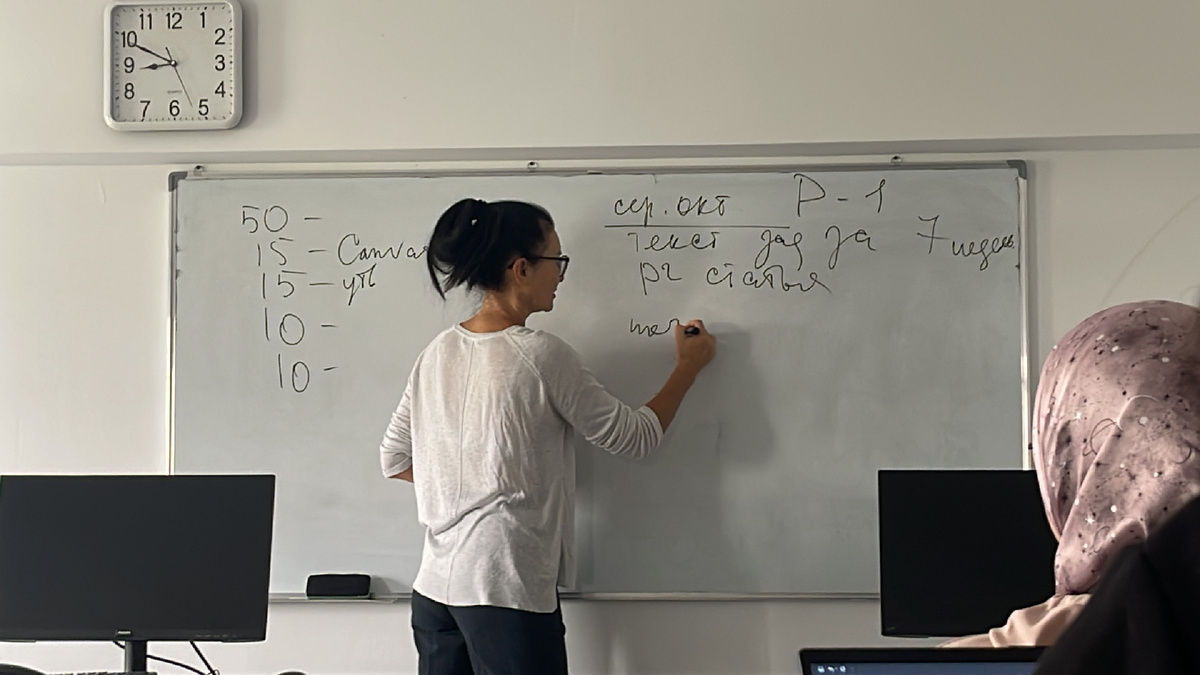 11 12 1
10 2
9 3
8 4
7 6 5
50 -
15 - Canva
15 - ут
10 -
10 -
сер. окт P-1
текст зад за 7 недел
рг статья